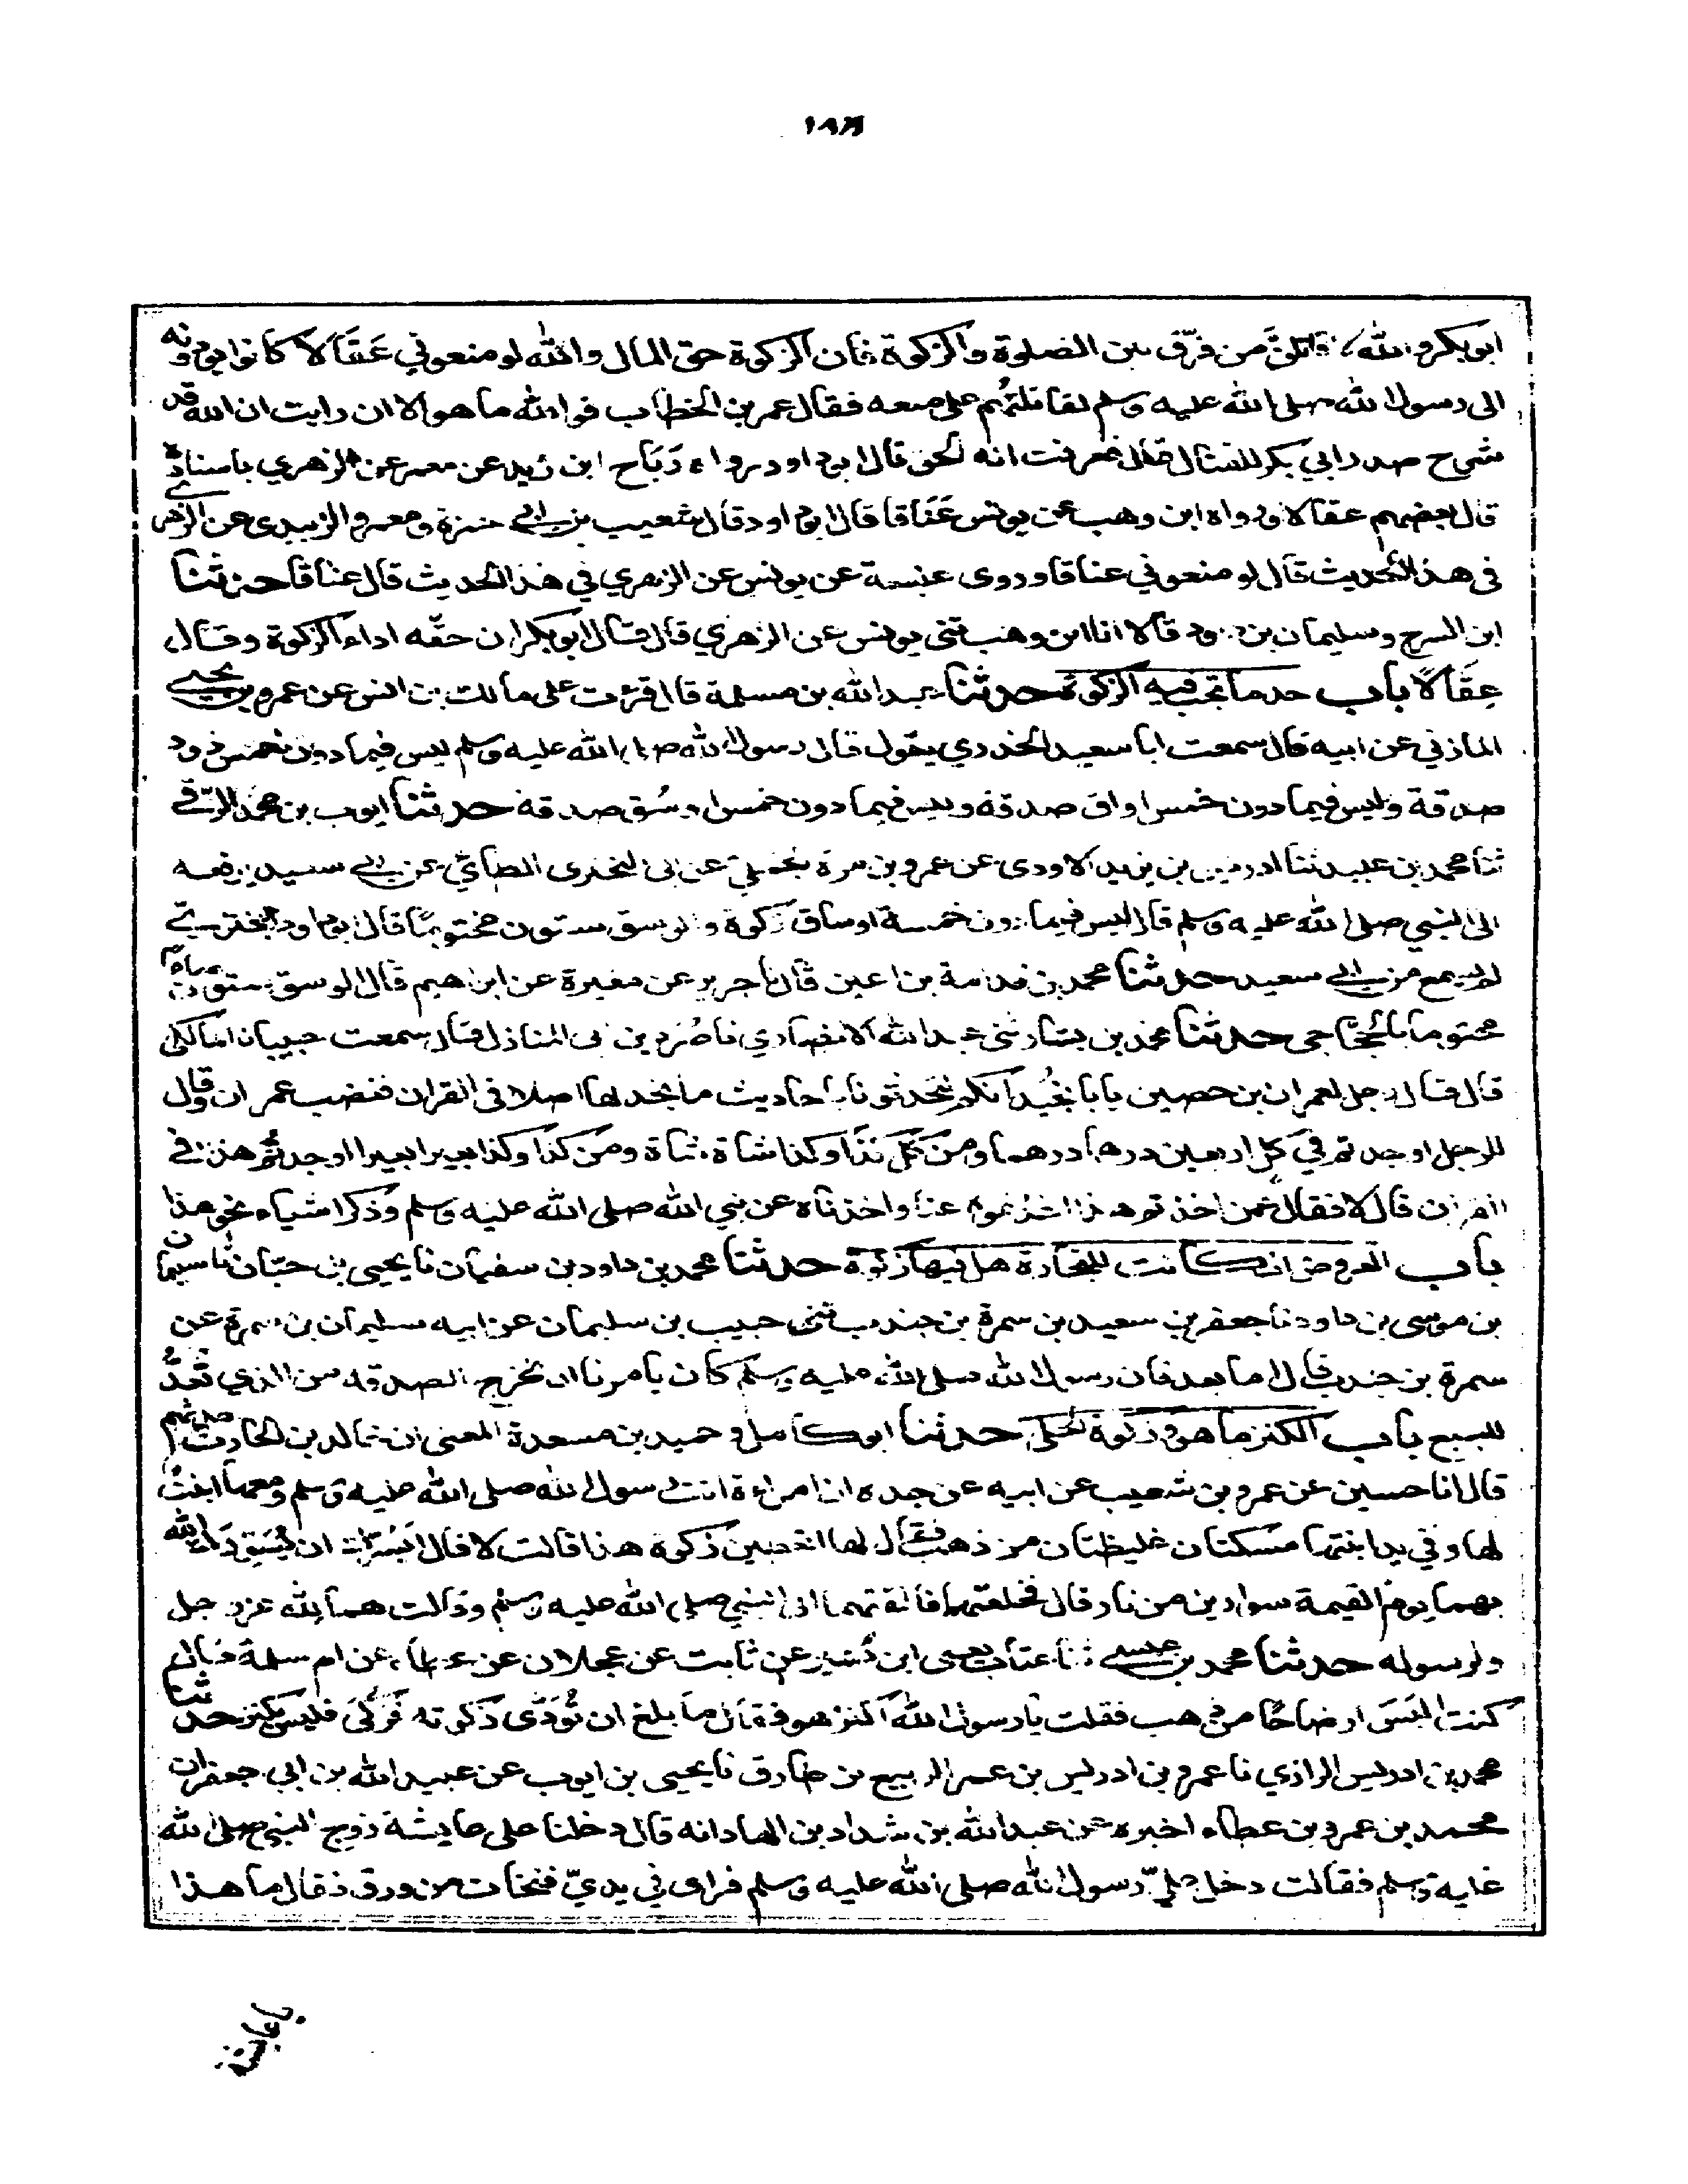 ١٨٦
ابو بكر والله لاقاتلنَّ من فرّق بين الصلوة والزكوة فان الزكوة حق المال والله لو منعوني عقالا كانوا يودونه
الى رسول الله صلى الله عليه وسلم لقاتلتُهم على منعه فقال عمر بن الخطاب فوالله ما هو الا ان رايت ان الله قد
شرح صدر ابي بكر للقتال قال فعرفت انه الحق قال ابو داود رواه رَبَاح ابن زيد عن معمر عن الزهري باسناده
قال بعضهم عقالا ورواه ابن وهب عن يونس عَنَاقا قال ابو داود قال شعيب بن ابي حمزة ومعمر والزبيدى عن الزهرى
فى هذا الحديث قال لو منعوني عناقا وروى عنبسة عن يونس عن الزهري في هذا الحديث قال عناقا حدثنا
ابن السرح وسليمان بن داود قالا انا ابن وهب ثنى يونس عن الزهري قال قال ابو بكر ان حقّه اداء الزكوة وقال
عِقَالًا باب حد ما تجب فيه الزكوة حدثنا عبد الله بن مسلمة قال قرءت على مالك بن انس عن عمرو بن يحيى
المازني عن ابيه قال سمعت ابا سعيد الخدري يقول قال رسول الله صلى الله عليه وسلم ليس فيما دون خمس ذود
صدقة وليس فيما دون خمس اواق صدقة وليس فيما دون خمس اوسُق صدقة حدثنا ايوب بن محمد الرّقي
ثنا محمد بن عبيد ثنا ادريس بن يزيد الاودى عن عمرو بن مرة الجملي عن ابى البخترى الطائي عن ابي سعيد يرفعه
الى النبي صلى الله عليه وسلم قال ليس فيما دون خمسة اوساق زكوة والوسق ستون مختوما قال ابو داود البختري
لم يسمع من ابي سعيد حدثنا محمد بن قدامة بن اعين قال نا جرير عن مغيرة عن ابراهيم قال الوسق ستون صاعا
مختوما بالحجّاجى حدثنا محمد بن بشار ثنى محمد بن عبد الله الانصاري نا صُرَد بن ابى المنازل قال سمعت حبيبا المالكى
قال قال رجل لعمران بن حصين يابا نجُيد انكم لتحدثونا باحاديث ما نجد لها اصلا فى القران فغضب عمران وقال
للرجل اوجدتم في كل اربعين درهما درهما ومن كل كذا وكذا شاة شاة ومن كذا وكذا بعيرا بعيرا اوجدتم هذا في
القران قال لا فقال عمن اخذتم هذا اخذتموه عنا واخذناه عن نبي الله صلى الله عليه وسلم وذكر اشياء نحو هذا
باب العروض ان كانت للتجارة هل فيها زكوة حدثنا محمد بن داود بن سفيان نا يحيى بن حسّان نا سليمان
بن موسى بن داود نا جعفر بن سعيد بن سمرة بن جندب ثنى حبيب بن سليمان عن ابيه سليمان بن سمرة عن
سمرة بن جندب قال اما بعد فان رسول الله صلى الله عليه وسلم كان يامرنا ان نخرج الصدقة من الذي نُعِدُّ
للبيع باب الكنز ما هو وزكوة الحلي حدثنا ابو كامل وحميد بن مسعدة المعنى ان خالد بن الحارث حدثهم
قال انا حسين عن عمرو بن شعيب عن ابيه عن جده ان امراءة اتت رسول الله صلى الله عليه وسلم ومعها ابنت
لها وفي يد ابنتها مسكتان غليظتان من ذهب فقال لها اتعطين زكوة هذا قالت لا قال ايسُرّك ان يُسَوِّرَكِ الله
بهما يوم القيمة سوارين من نار قال فخلعتهما فالقتهما الى النبي صلى الله عليه وسلم وقالت هما لله عز وجل
ولرسوله حدثنا محمد بن عيسى ثنا عتاب يعنى ابن بُشير عن ثابت عن عجلان عن عطاء عن ام سلمة قالت
كنت البَسُ اوضاحًا من ذهب فقلت يا رسول الله اكنز هو فقال ما بلغ ان تُؤدَّى زكوته فزُكّى فليس بكنز حدثنا
محمد بن ادريس الرازي نا عمرو بن ادريس بن عمر الربيع بن طارق نا يحيى بن ايوب عن عبيد الله بن ابى جعفر ان
محمد بن عمرو بن عطاء اخبره عن عبد الله بن شداد بن الهاد انه قال دخلنا على عايشة زوج النبي صلى الله
عليه وسلم فقالت دخل عليّ رسول الله صلى الله عليه وسلم فراى في يديّ فتخات من ورق فقال ما هذا